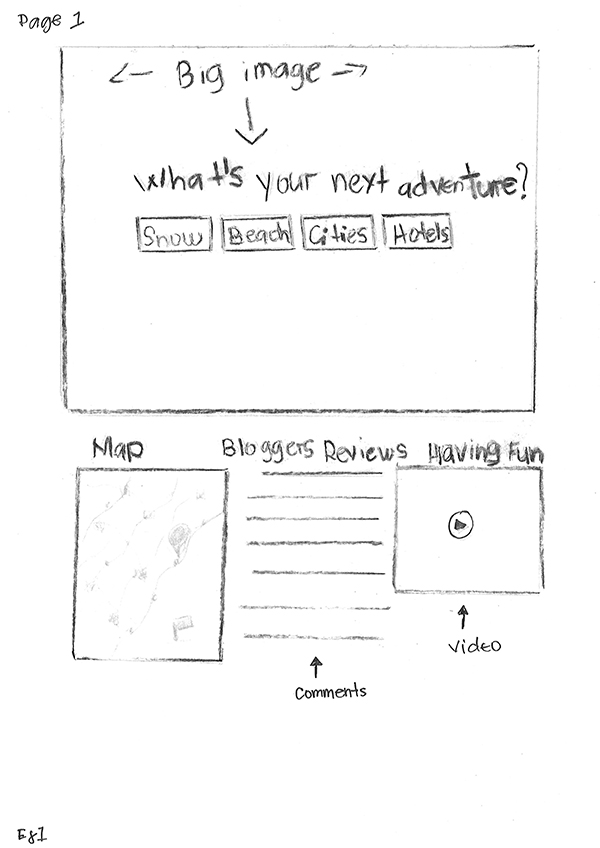 Page 1
<- Big image ->
What's your next adventure?
Snow Beach Cities Hotels
Map
Bloggers Reviews
Having Fun
Video
Comments
Eg1